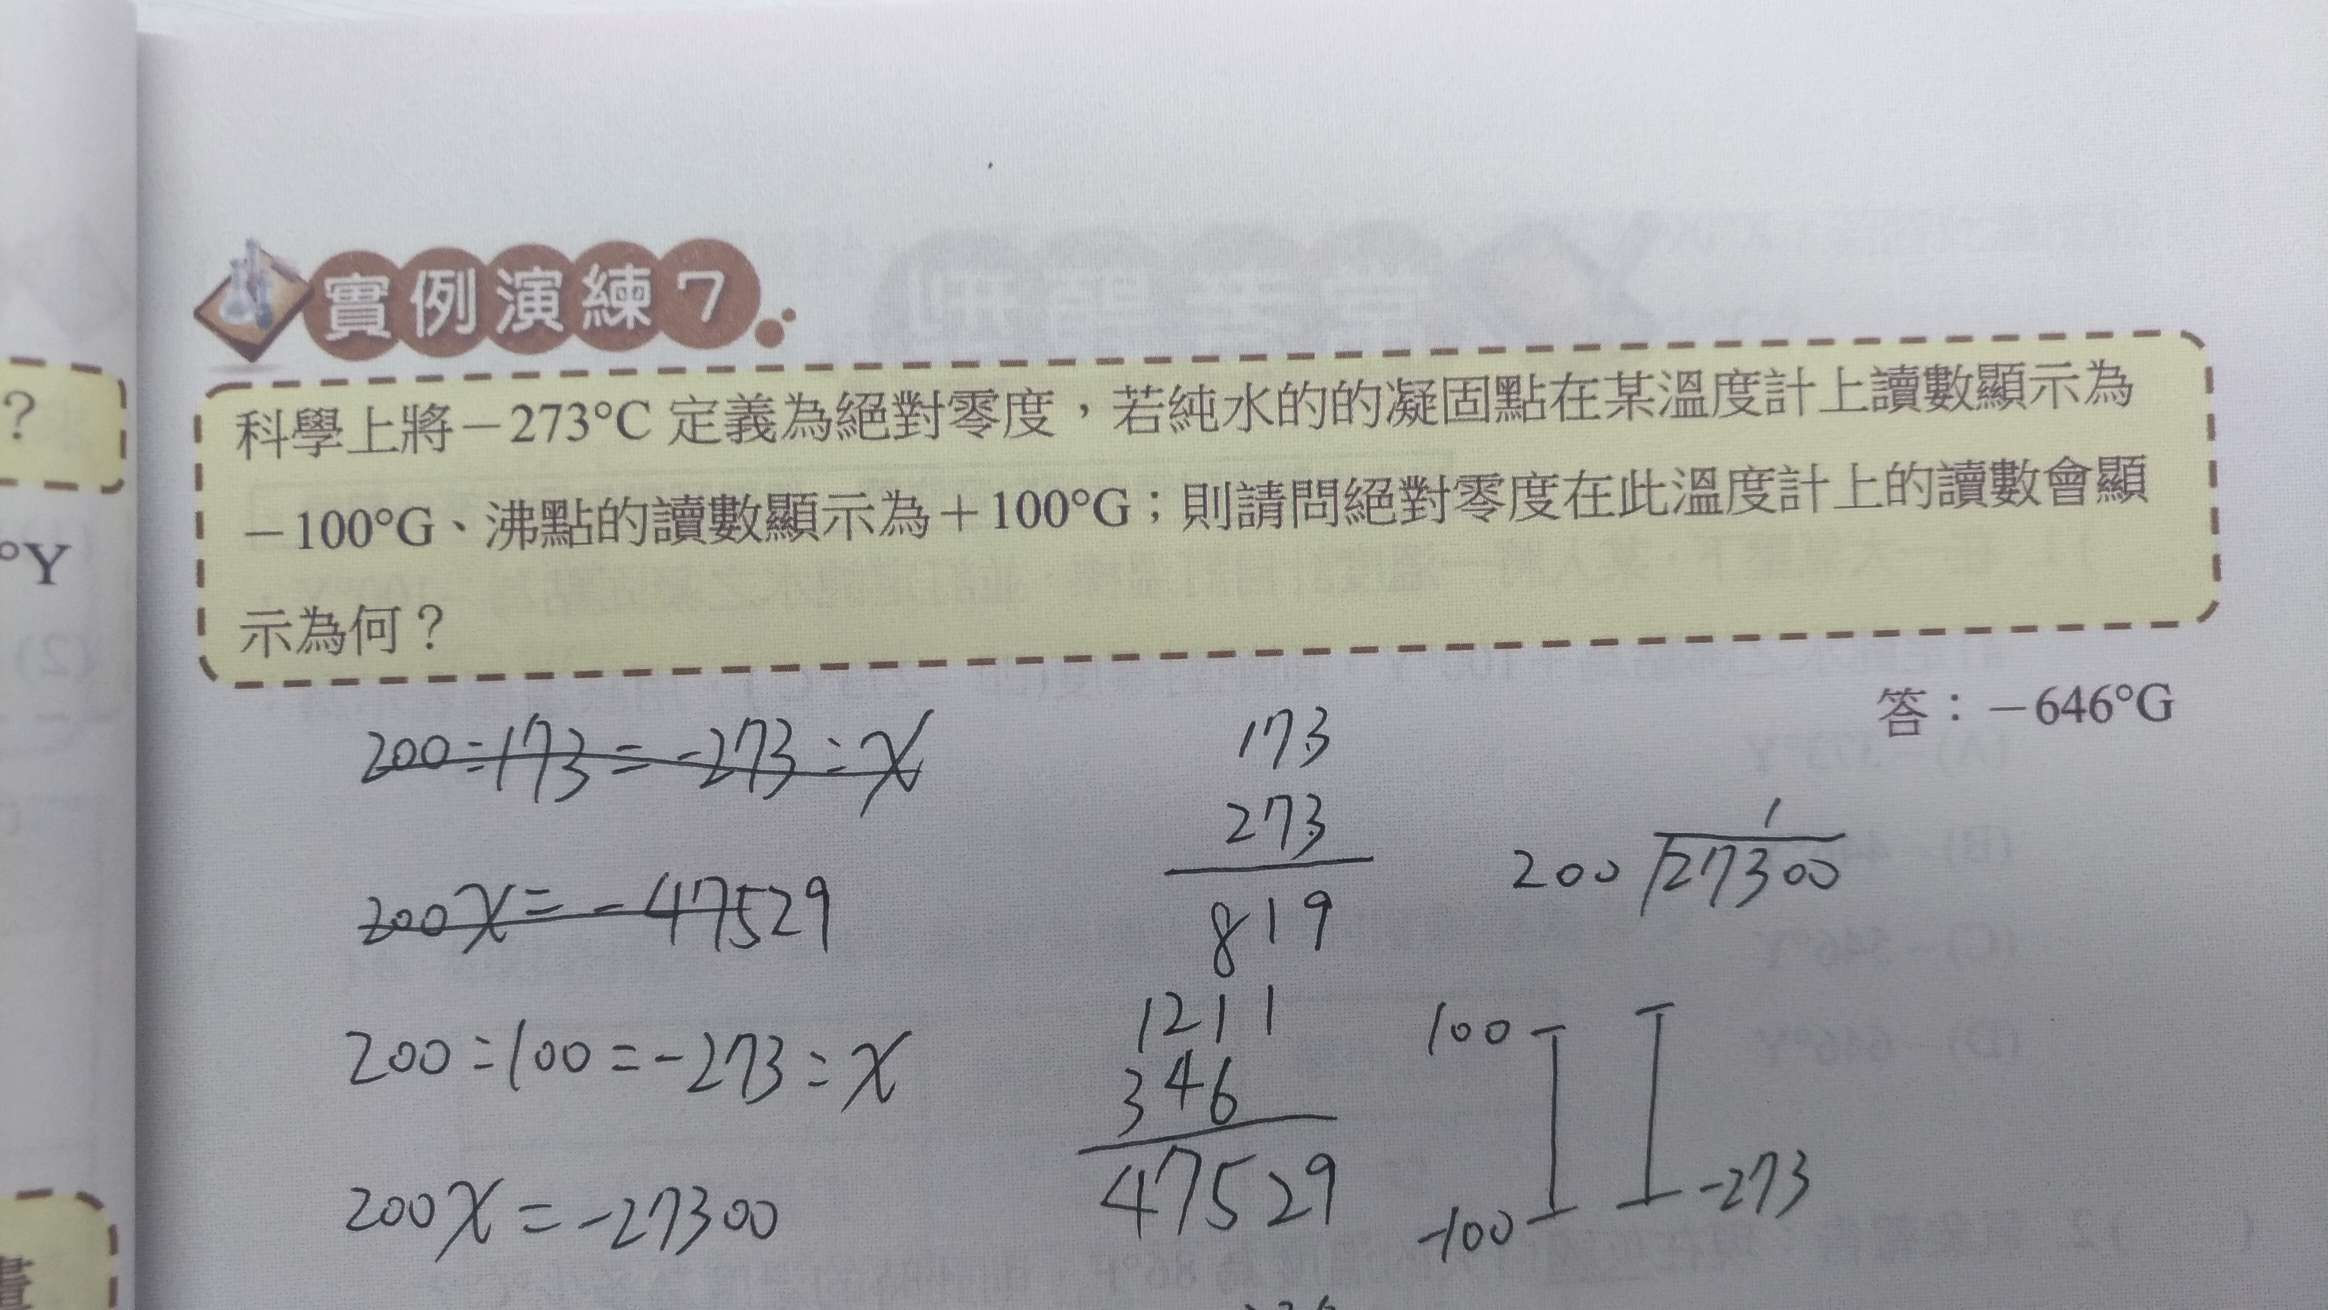 實例演練7
科學上將－273°C 定義為絕對零度，若純水的的凝固點在某溫度計上讀數顯示為
－100°G、沸點的讀數顯示為＋100°G；則請問絕對零度在此溫度計上的讀數會顯
示為何？
答：－646°G
?
°Y
200:173=-273:x
200x=-47529
200:100=-273:x
200x=-27300
173
273
819
1211
346
47529
1
200 27300
100
-100
-273